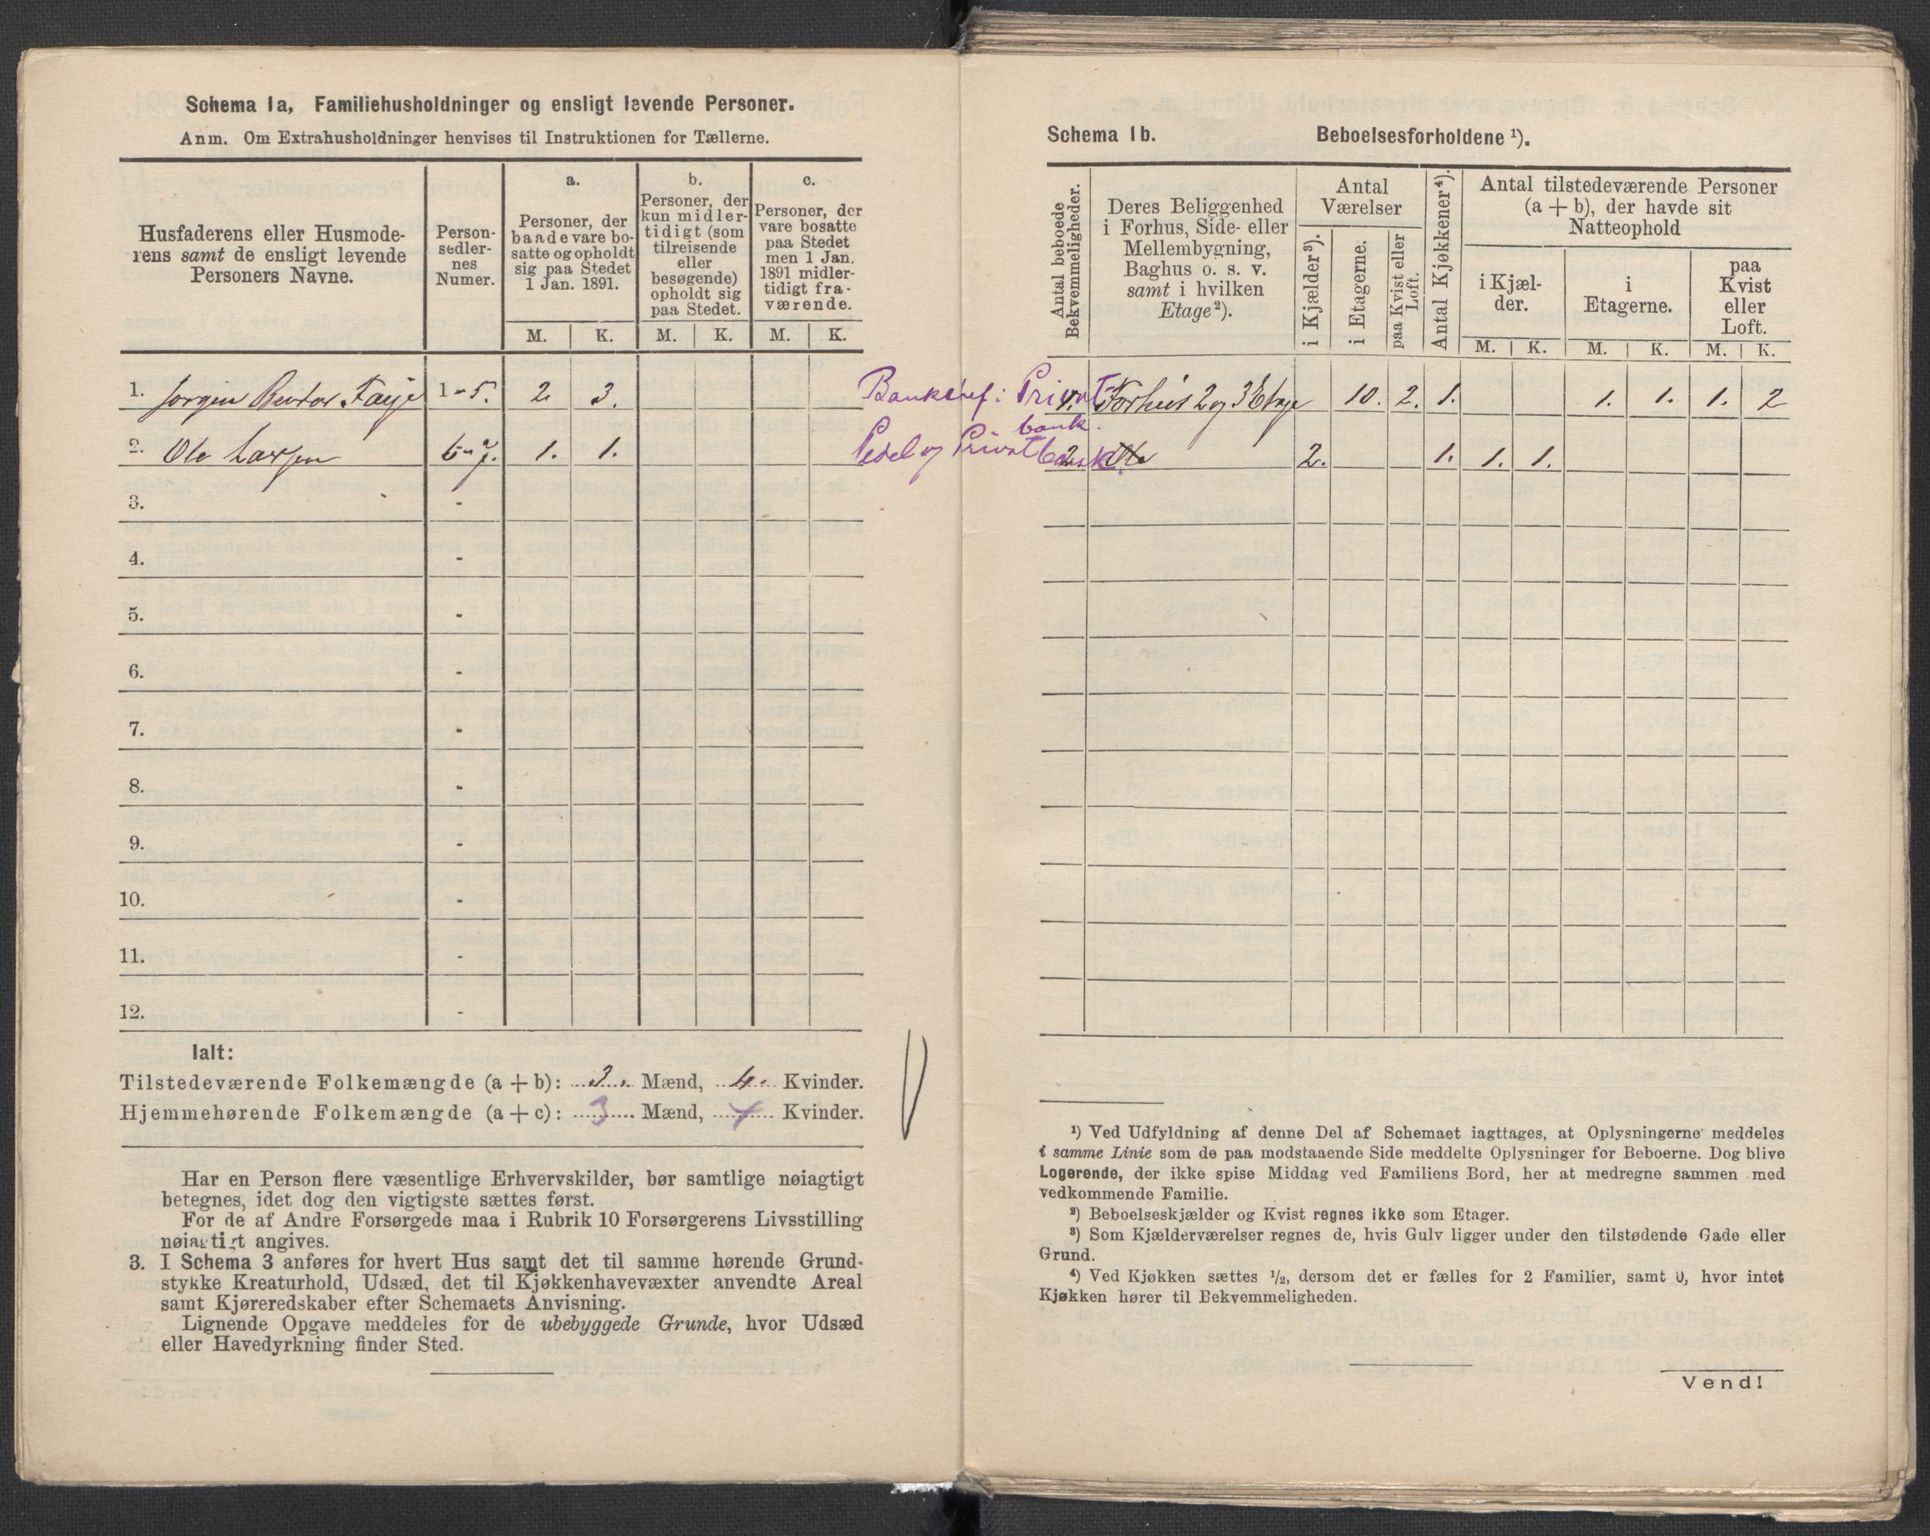 Schema 1a, Familiehusholdninger og ensligt levende Personer.
Anm. Om Extrahusholdninger henvises til Instruktionen for Tællerne.
Husfaderens eller Husmode-
rens samt de ensligt levende
Personers Navne.
Person-
sedler-
nes
Numer.
a.
Personer, der
baade vare bo-
satte og opholdt
sig paa Stedet
1 Jan. 1891.
b.
Personer, der
kun midler-
tidigt (som
tilreisende
eller
besøgende)
opholdt sig
paa Stedet.
c.
Personer, der
vare bosatte
paa Stedet
men 1 Jan.
1891 midler-
tidigt fra-
værende.
M. K. M. K. M. K.
1. Jørgen Faye 1-5. 2. 3.
2. Ole Larsen 6-7. 1. 1.
3. -
4. -
5. -
6. -
7. -
8. -
9. -
10. -
11. -
12. -
Ialt:
Tilstedeværende Folkemængde (a + b): 3. Mænd, 4. Kvinder.
Hjemmehørende Folkemængde (a + c): 3 Mænd, 4 Kvinder.
Har en Person flere væsentlige Erhvervskilder, bør samtlige nøiagtigt
betegnes, idet dog den vigtigste sættes først.
For de af Andre Forsørgede maa i Rubrik 10 Forsørgerens Livsstilling
nøiagtigt angives.
3. I Schema 3 anføres for hvert Hus samt det til samme hørende Grund-
stykke Kreaturhold, Udsæd, det til Kjøkkenhavevæxter anvendte Areal
samt Kjøreredskaber efter Schemaets Anvisning.
Lignende Opgave meddeles for de ubebyggede Grunde, hvor Udsæd
eller Havedyrkning finder Sted.
Schema 1b. Beboelsesforholdene ¹).
Antal beboede
Bekvemmeligheder.
Deres Beliggenhed
i Forhus, Side- eller
Mellembygning,
Baghus o. s. v.
samt i hvilken
Etage²).
Antal
Værelser
i Kjælder³).
i Etagerne.
paa Kvist eller
Loft.
Antal Kjøkkener⁴).
Antal tilstedeværende Personer
(a + b), der havde sit
Natteophold
i Kjæl-
der.
i
Etagerne.
paa
Kvist
eller
Loft.
M. K. M. K. M. K.
Bankchef i Privat
bank.
1. Forhus 2 og 3 Etage 10. 2. 1. 1. 1. 1. 2
Pedel og Privatbank.
2. 2. 1. 1. 1.
¹) Ved Udfyldning af denne Del af Schemaet iagttages, at Oplysningerne meddeles
i samme Linie som de paa modstaaende Side meddelte Oplysninger for Beboerne. Dog blive
Logerende, der ikke spise Middag ved Familiens Bord, her at medregne sammen med
vedkommende Familie.
²) Beboelseskjælder og Kvist regnes ikke som Etager.
³) Som Kjælderværelser regnes de, hvis Gulv ligger under den tilstødende Gade eller
Grund.
⁴) Ved Kjøkken sættes ½, dersom det er fælles for 2 Familier, samt 0, hvor intet
Kjøkken hører til Bekvemmeligheden.
Vend!